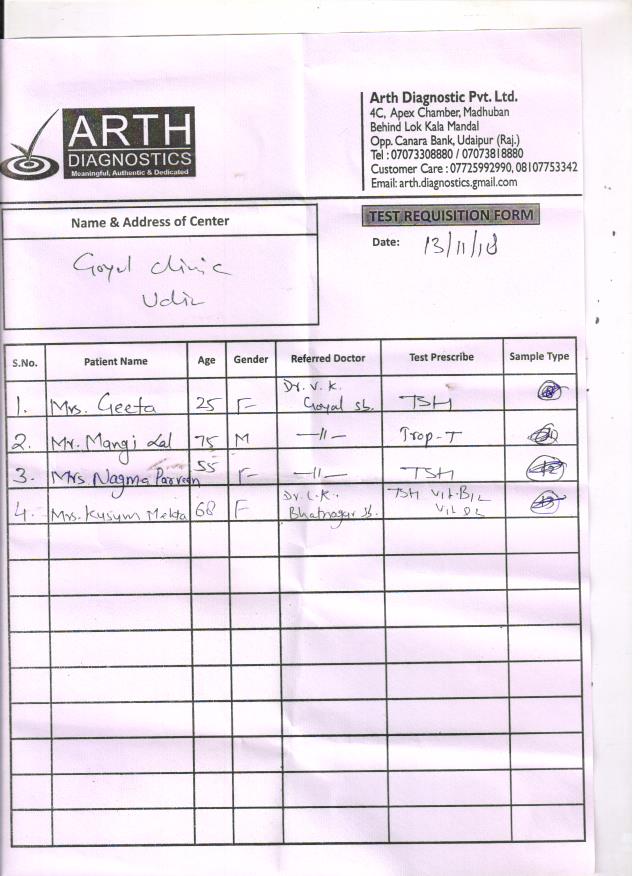 ARTH
DIAGNOSTICS
Meaningful, Authentic & Dedicated
Arth Diagnostic Pvt. Ltd.
4C, Apex Chamber, Madhuban
Behind Lok Kala Mandal
Opp. Canara Bank, Udaipur (Raj.)
Tel : 07073308880 / 07073818880
Customer Care : 07725992990, 08107753342
Email: arth.diagnostics.gmail.com
Name & Address of Center
Goyal clinic
TEST REQUISITION FORM
Date: 13/11/18
S.No. Patient Name Age Gender Referred Doctor Test Prescribe Sample Type
1. Mrs. Geeta 25 F Dr. V. K. Goyal sb. TSH
2. Mr. Mangi Lal 75 M —11— Trop-T
3. Mrs Nagma Parveen 55 F —11— TSH
4. Mrs. Kusum Mehta 68 F Dr. L.K. Bhatnagar sb. TSH Vit-B12